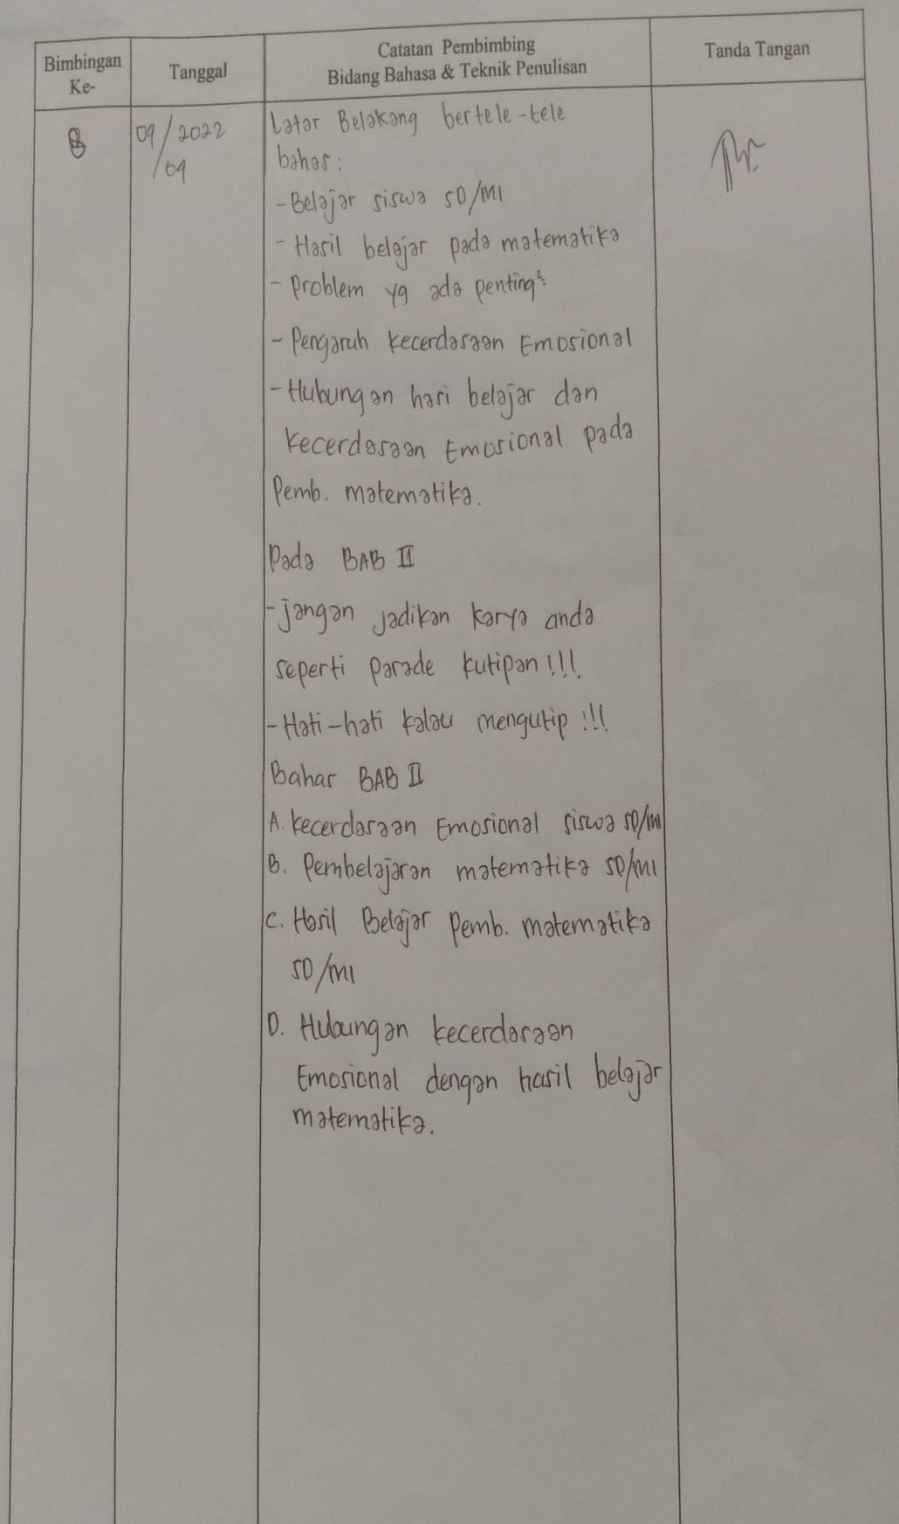 Bimbingan
Ke-
Tanggal
Catatan Pembimbing
Bidang Bahasa & Teknik Penulisan
Tanda Tangan
8
09/2022
/09
Latar Belakang bertele-tele
bahas:
- Belajar siswa SD/MI
- Hasil belajar pada matematika
- Problem yg ada penting²
- Pengaruh kecerdasaan Emosional
- Hubungan hasi belajar dan
kecerdasaan Emosional pada
Pemb. matematika.
Pada BAB II
- jangan jadikan karya anda
seperti parade kutipan!!!
- Hati-hati kalau mengutip!!!
Bahas BAB II
A. kecerdasaan Emosional siswa SD/MI
B. Pembelajaran matematika SD/MI
C. Hasil Belajar Pemb. matematika
SD/MI
D. Hubungan kecerdasaan
Emosional dengan hasil belajar
matematika.